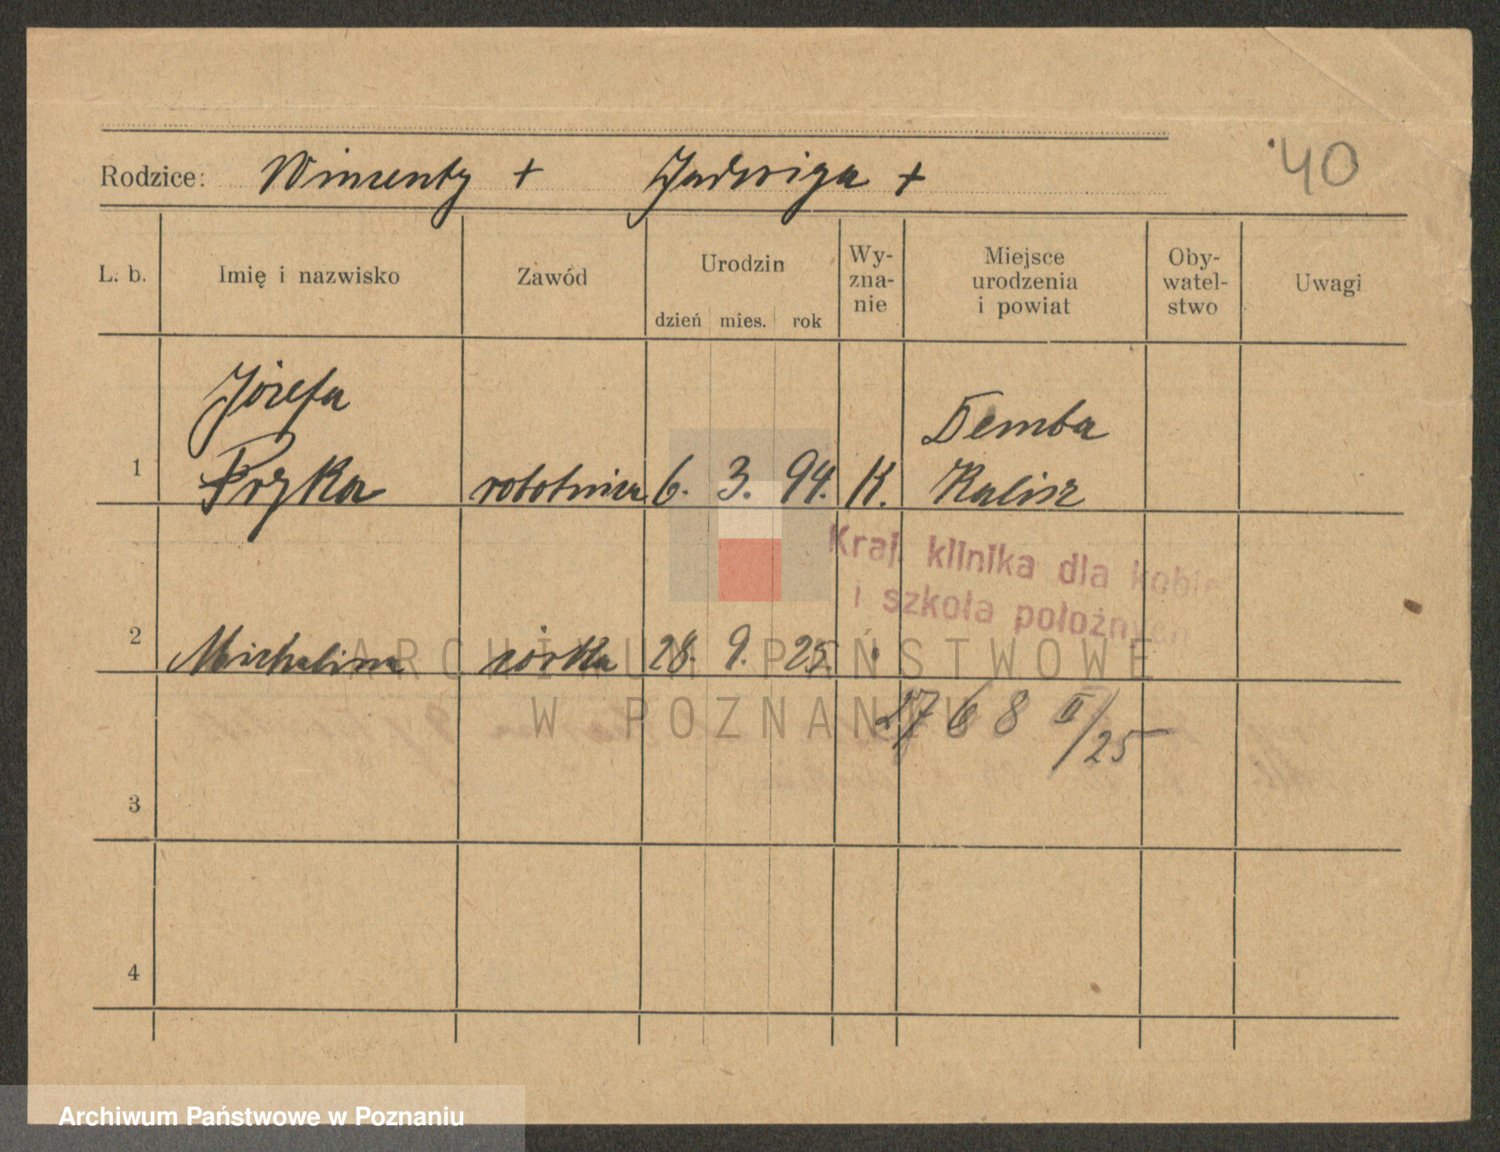 40
Rodzice: Wincenty + Jadwiga +
L. b. Imię i nazwisko Zawód Urodzin dzień mies. rok Wy-znanie Miejsce urodzenia i powiat Oby-watel-stwo Uwagi
Józefa
Demba
1 Pryka robotnica 6. 3. 94. K. Kalisz
Kraj. klinika dla kobie
i szkoła położnych
2 Michalina córka 28. 9. 25.
2768 II/25
3
4
ARCHIWUM PAŃSTWOWE
W POZNANIU
Archiwum Państwowe w Poznaniu